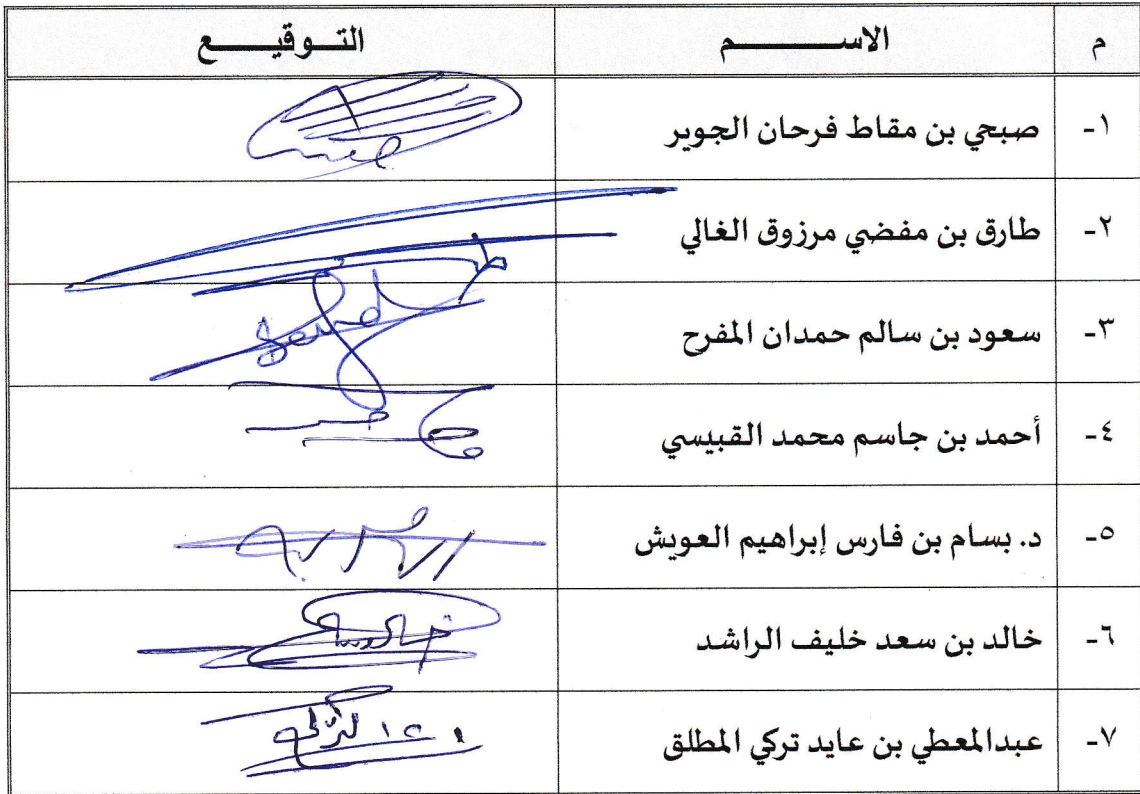 م الاســـــــم التـــوقيـــــع
١- صبحي بن مقاط فرحان الجوير
٢- طارق بن مفضي مرزوق الغالي
٣- سعود بن سالم حمدان المفرح
٤- أحمد بن جاسم محمد القبيسي
٥- د. بسام بن فارس إبراهيم العويش
٦- خالد بن سعد خليف الراشد
٧- عبدالمعطي بن عايد تركي المطلق